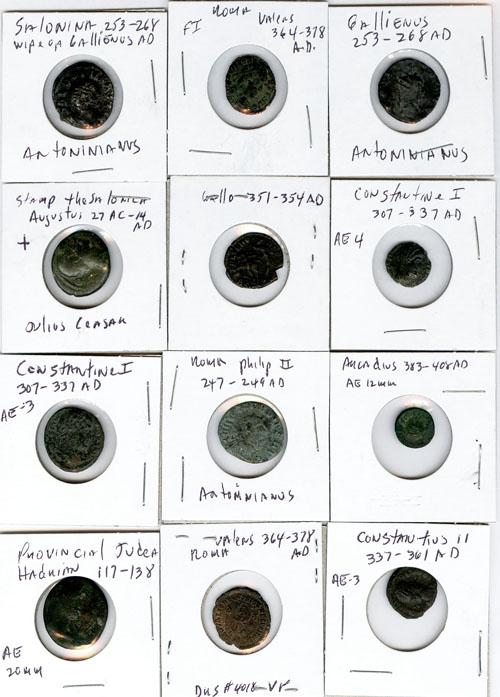 Salonina, 253-268
wife of Gallienus AD
Antoninianus
FI Roma
Valens
364-378
A.D.
Gallienus
253-268 AD
Antoninianus
Stamp Thesalonica
Augustus 27 AC-14
AD
+
Julius Ceasar
Gallo-351-354 AD
Constantine I
307-337 AD
AE 4
Constantine I
307-337 AD
AE-3
Roma Philip II
247-249 AD
Antoninianus
Arcadius 383-408 AD
AE 12mm
Provincial Judea
Hadrian 117-138
AE
20mm
Valens 364-378
Roma A.D
Constantius II
337-361 AD
AE-3